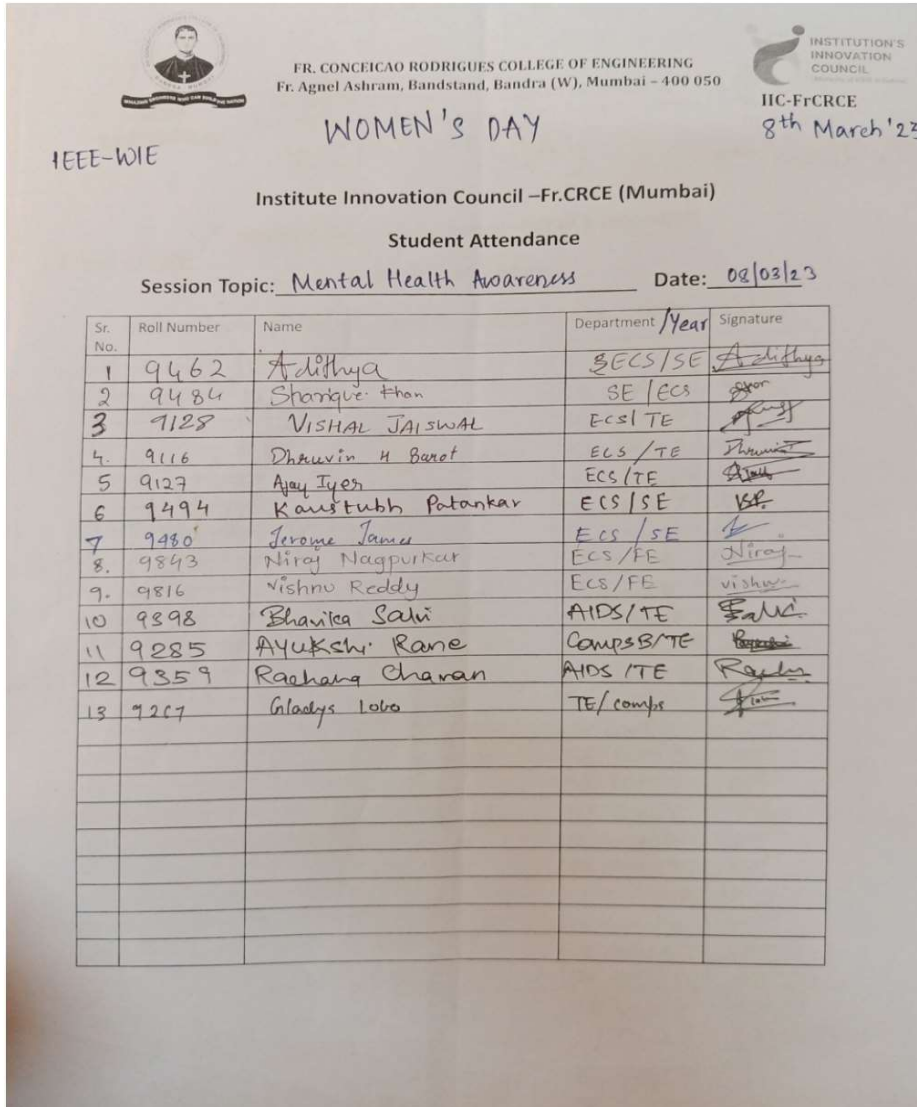 INSTITUTION'S
INNOVATION
COUNCIL
FR. CONCEICAO RODRIGUES COLLEGE OF ENGINEERING
Fr. Agnel Ashram, Bandstand, Bandra (W), Mumbai – 400 050
IIC-FrCRCE
WOMEN'S DAY
8th March '23
IEEE-WIE
Institute Innovation Council –Fr.CRCE (Mumbai)
Student Attendance
Session Topic: Mental Health Awareness Date: 08/03/23
Sr. No. Roll Number Name Department /Year Signature
1 9462 Adithya ECS/SE Adithya
2 9484 Sharique Khan SE/ECS
3 9128 VISHAL JAISWAL ECS/TE
4. 9116 Dhruvin H Barot ECS/TE
5 9127 Ajay Iyer ECS/TE
6 9494 Kaustubh Patankar ECS/SE
7 9480 Jerome James ECS/SE
8. 9843 Niraj Nagpurkar ECS/FE Niraj
9. 9816 Vishnu Reddy ECS/FE
10 9398 Bhavika Salvi AIDS/TE
11 9285 AYUKShi Rane CompsB/TE
12 9359 Rachana Chavan AIDS/TE
13 9267 Gladys Lobo TE/comps